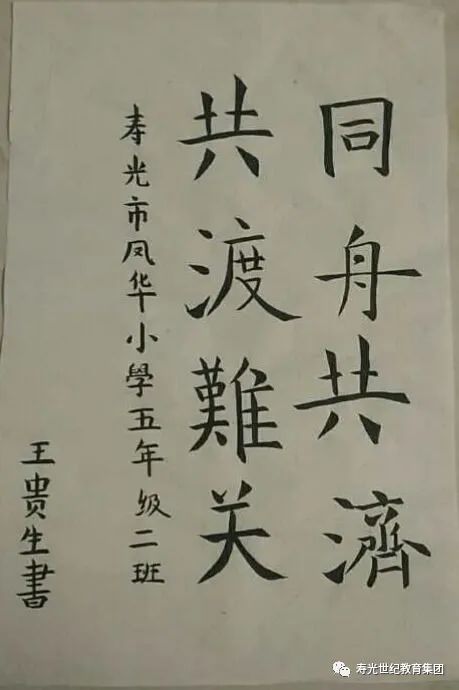 同舟共濟
共渡難关
寿光市凤华小學五年级二班
王贵生書
寿光世纪教育集团